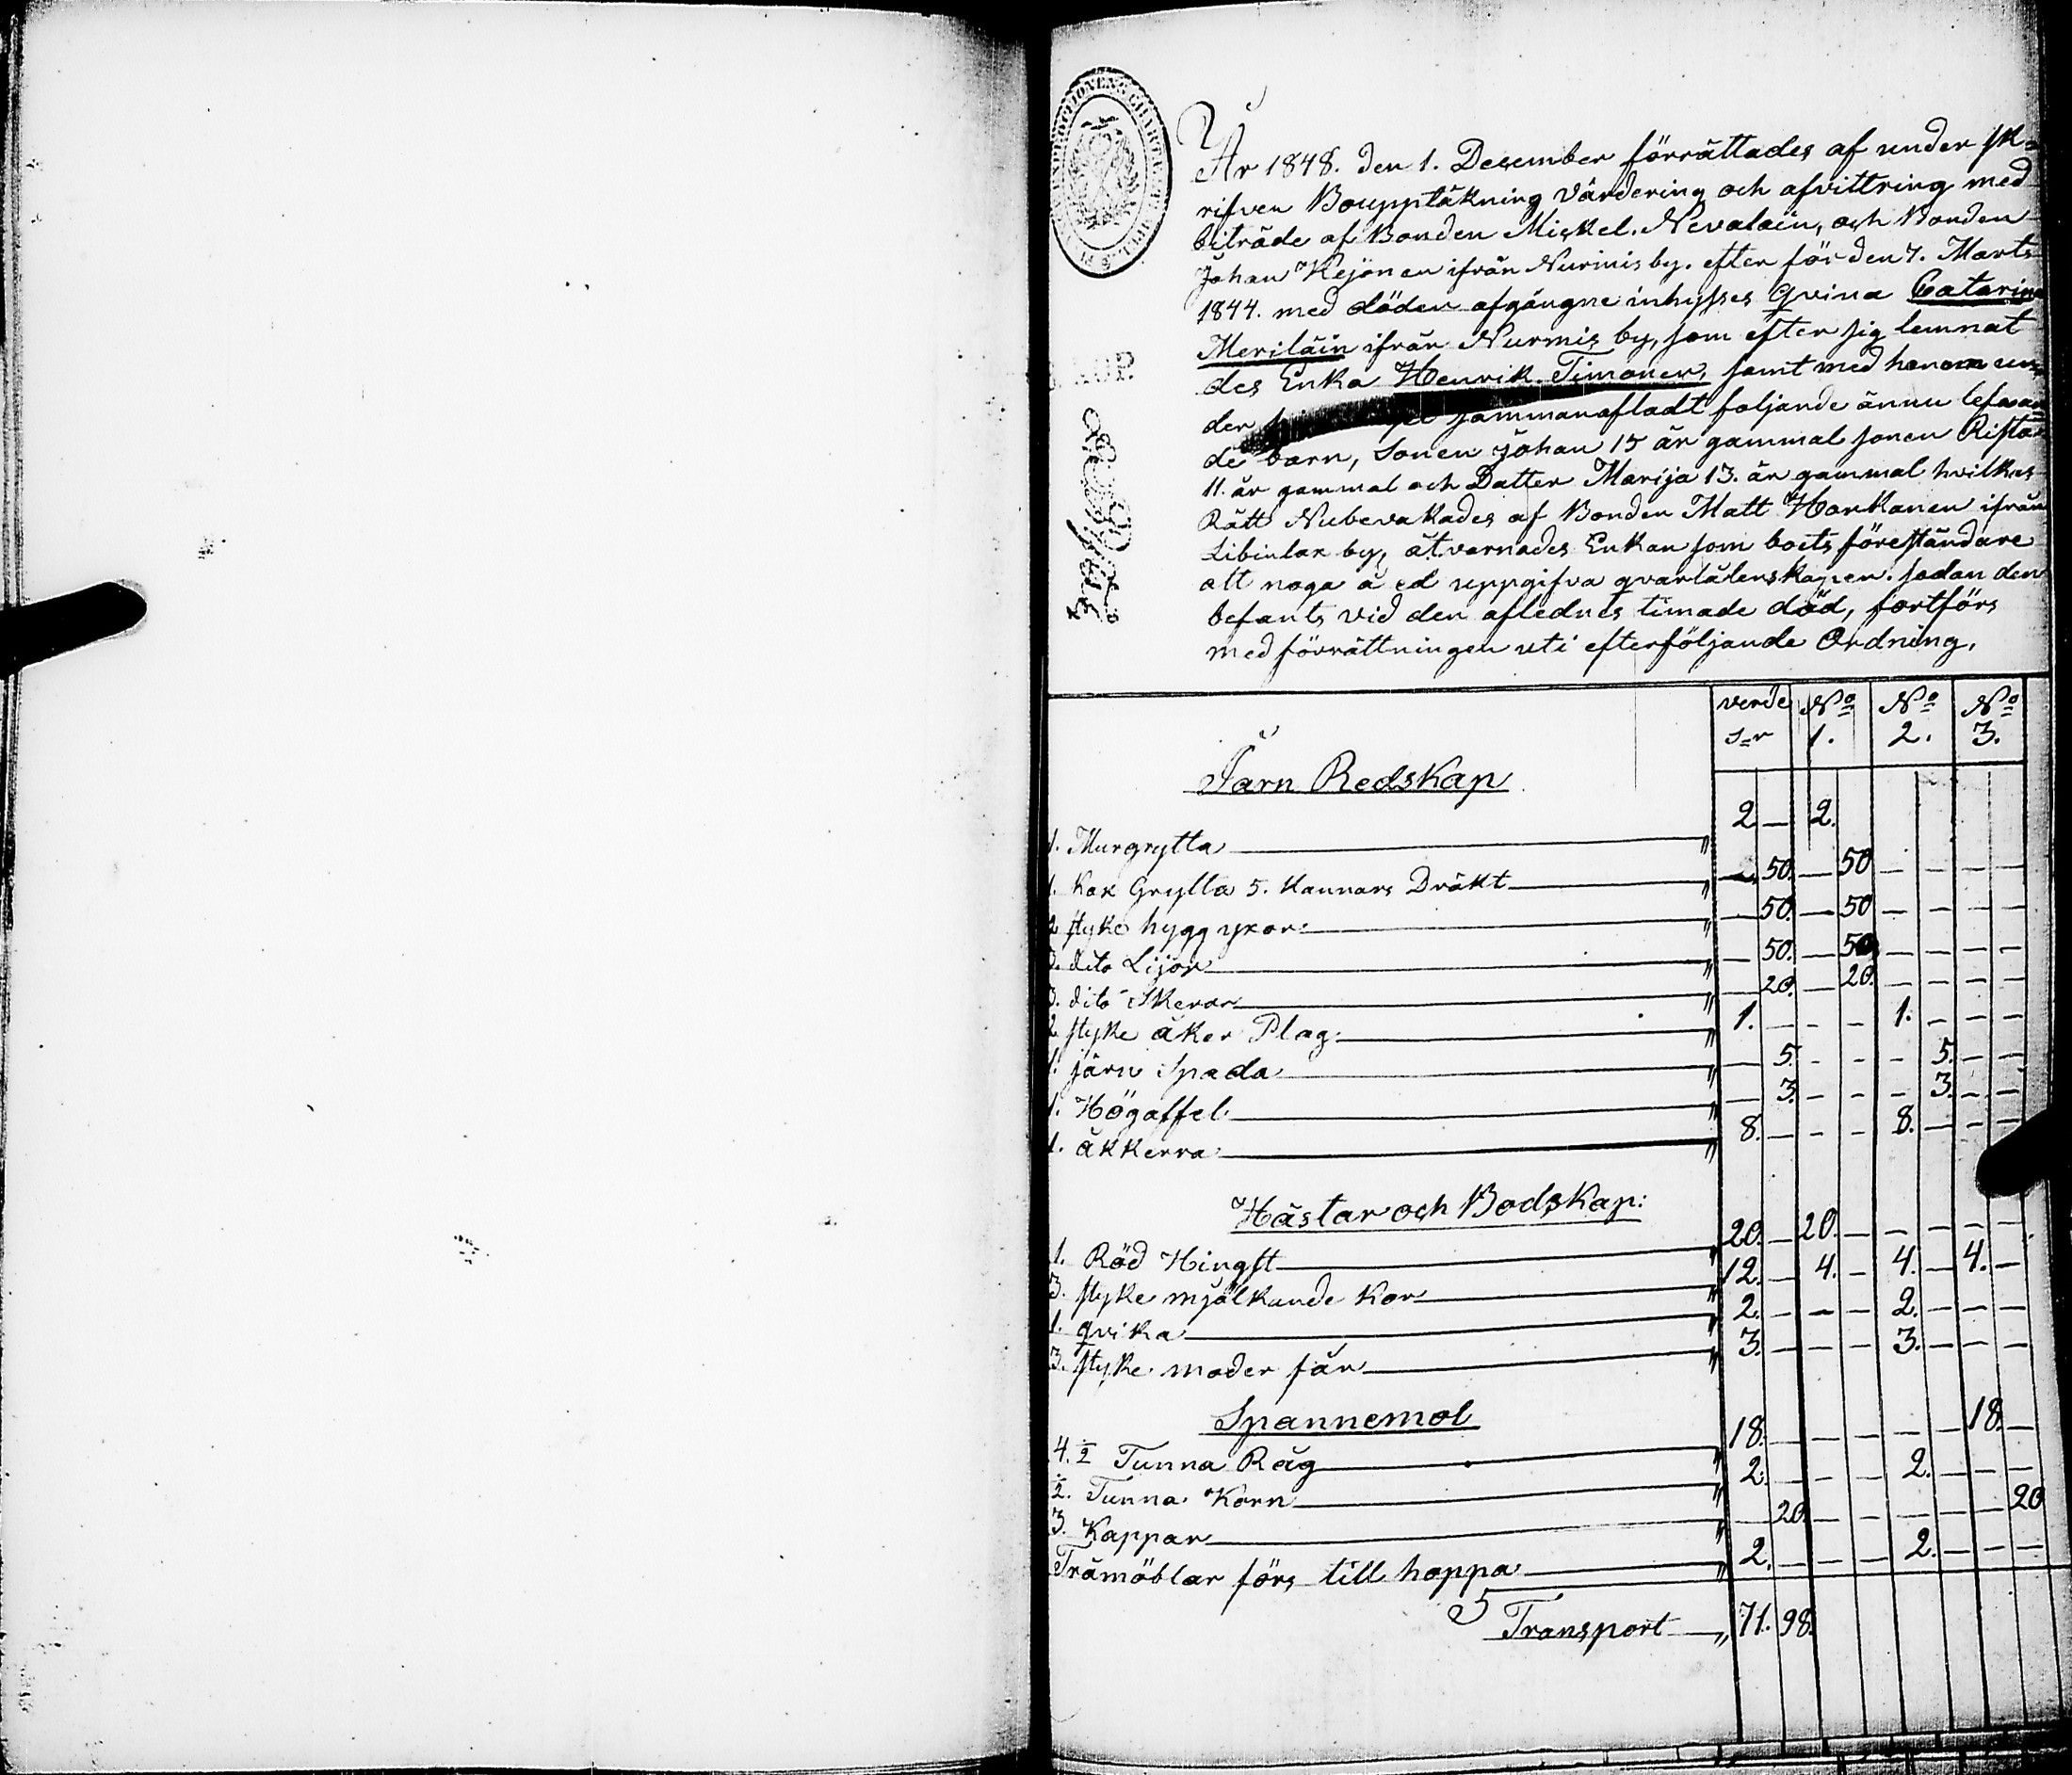 År 1848. den 1. Desember förrättades af under sk-
rifven Boupptäkning Värdering och afvittring med
biträde af Bonden Mickel. Nevalain, och Bonden
Johan Kejonen ifrån Nurmis by. efter för den 7. Marts
1844. med döden afgångne inhysses Qvina Catarina
Meriläin ifrån Nurmis by, som efter sig lemnat
des Enka Henrik Timonen, samt med honom un-
der sammanafladt foljande ännu lefvan-
de barn, Sonen Johan 15 år gammal sonen Rista
11. år gammal och Datter Marija 13. år gammal hvilkas
Rätt Nubevakades af Bonden Matt Harkanen ifrån
Libinlax by, åtvarnades Enkan som boets föreståndare
att noga å ed uppgifva qvarlåtenskapen. sådan den
befants vid den aflednes timade död, fortförs
med förrättningen uti efterföljande Ordning.
verde No No No
S-r 1. 2. 3.
Jarn Redskap
1. Murgrytta " 2 — 2.
1. Kok Grytta 5. Kannars Dräkt " — 50. — 50 — — — —
2 styke hygg yxor " — 50. — 50 — — — —
dito Lijor " — 50. — 50 — — — —
3. dito Skeror " — 20. — 20. — — — —
2 styke åker Plog " 1. — — — 1. — — —
1. järn Spada " — 5. — — — 5. — —
1. Högaffel " — 3. — — — 3. — —
1. åkkerra " 8. — — — 8. — — —
Hästar och Bodskap:
1. Röd Hingst " 20. — 20. — — — — —
3. styke mjölkande Kor " 12. — 4. — 4. — 4. —
1. qvika " 2. — — — 2. — — —
3. styke moder får " 3. — — — 3. — — —
Spannemol
4. ½ Tunna Råg " 18. — — — — — 18. —
½. Tunna Korn " 2. — — — 2. — — —
3. Kappar " — 20. — — — — — 20
Trämöblar förs till hoppa " 2. — — — 2. — — —
Transport " 71. 98.